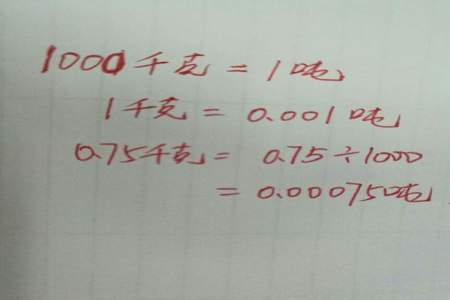 1000千克 = 1吨
1千克 = 0.001吨
0.75千克 = 0.75÷1000
= 0.00075吨